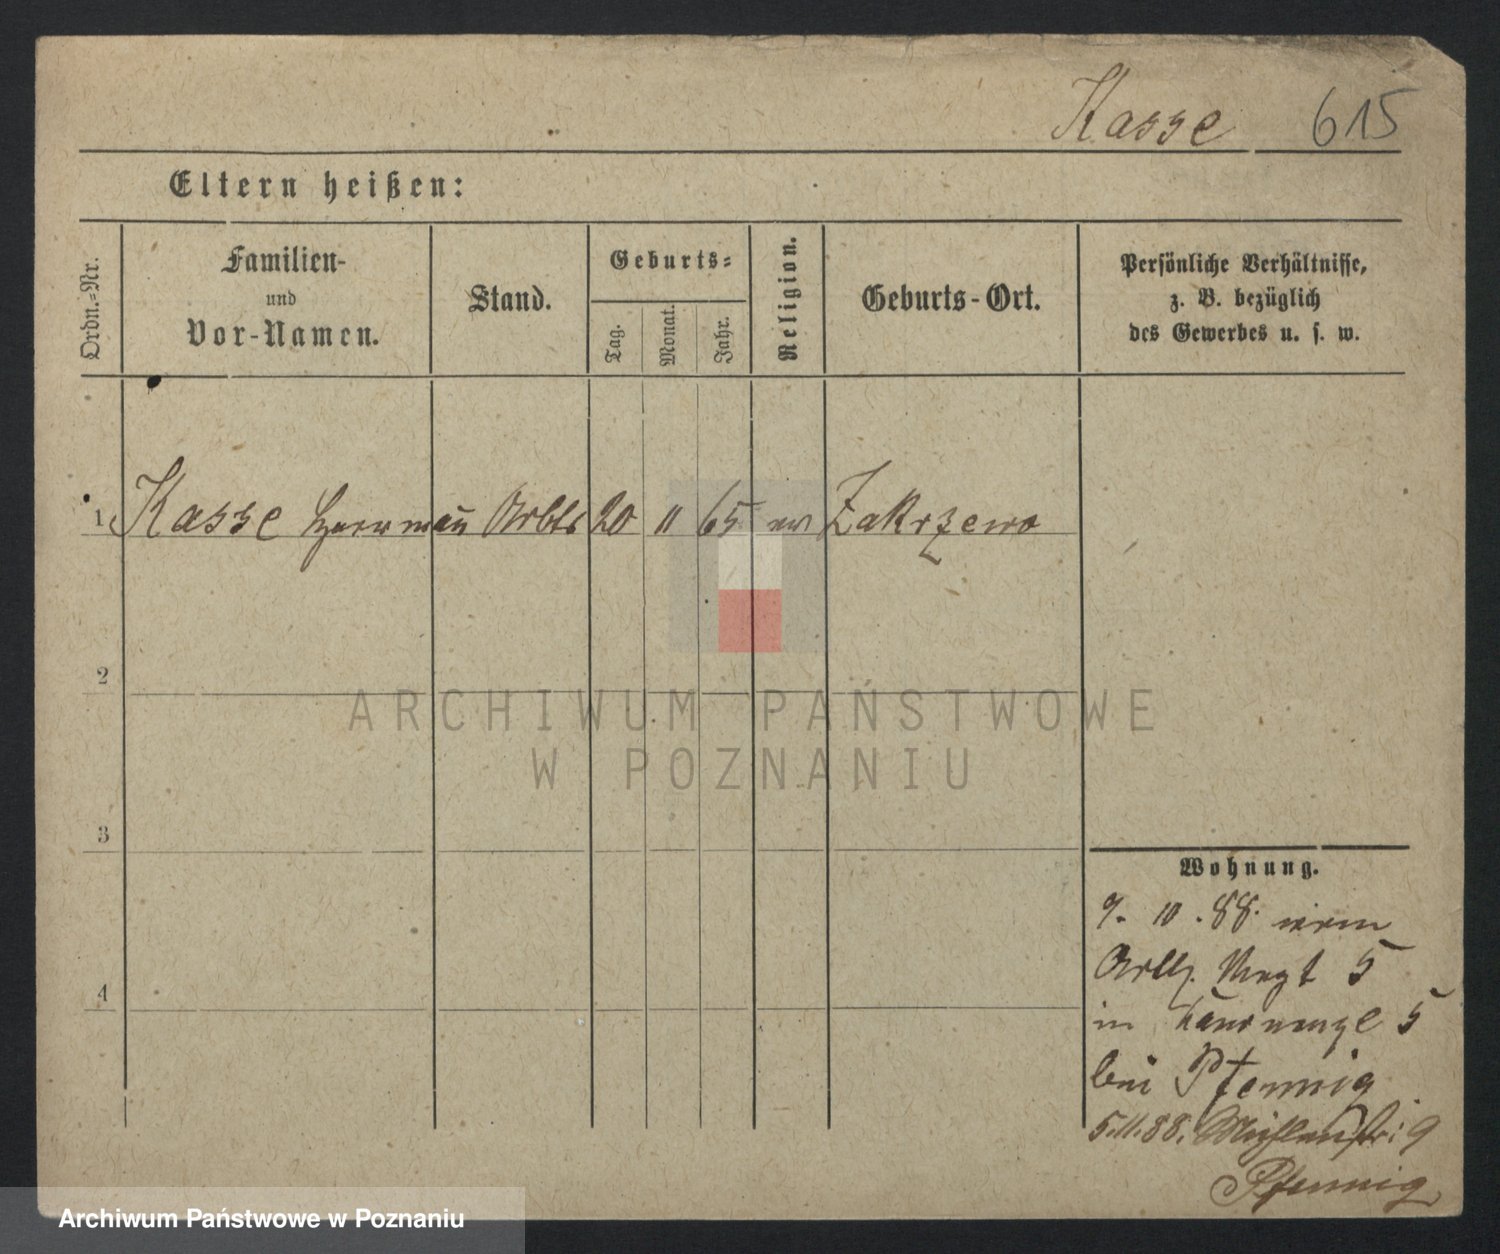 Kasse 615
Eltern heißen:
Ordn.=Nr.
Familien-
und
Vor-Namen.
Stand.
Geburts=
Tag.
Monat.
Jahr.
Religion.
Geburts-Ort.
Persönliche Verhältnisse,
z. B. bezüglich
des Gewerbes u. s. w.
1 Kasse Herrmañ Arbtr 20 11 65 ev Zakrzewo
2
3
4
ARCHIWUM PAŃSTWOWE
W POZNANIU
Wohnung.
9. 10. 88. von
5
in 5
bei Pfennig
5.11.88. Mühlenstr: 9
Pfennig
Archiwum Państwowe w Poznaniu